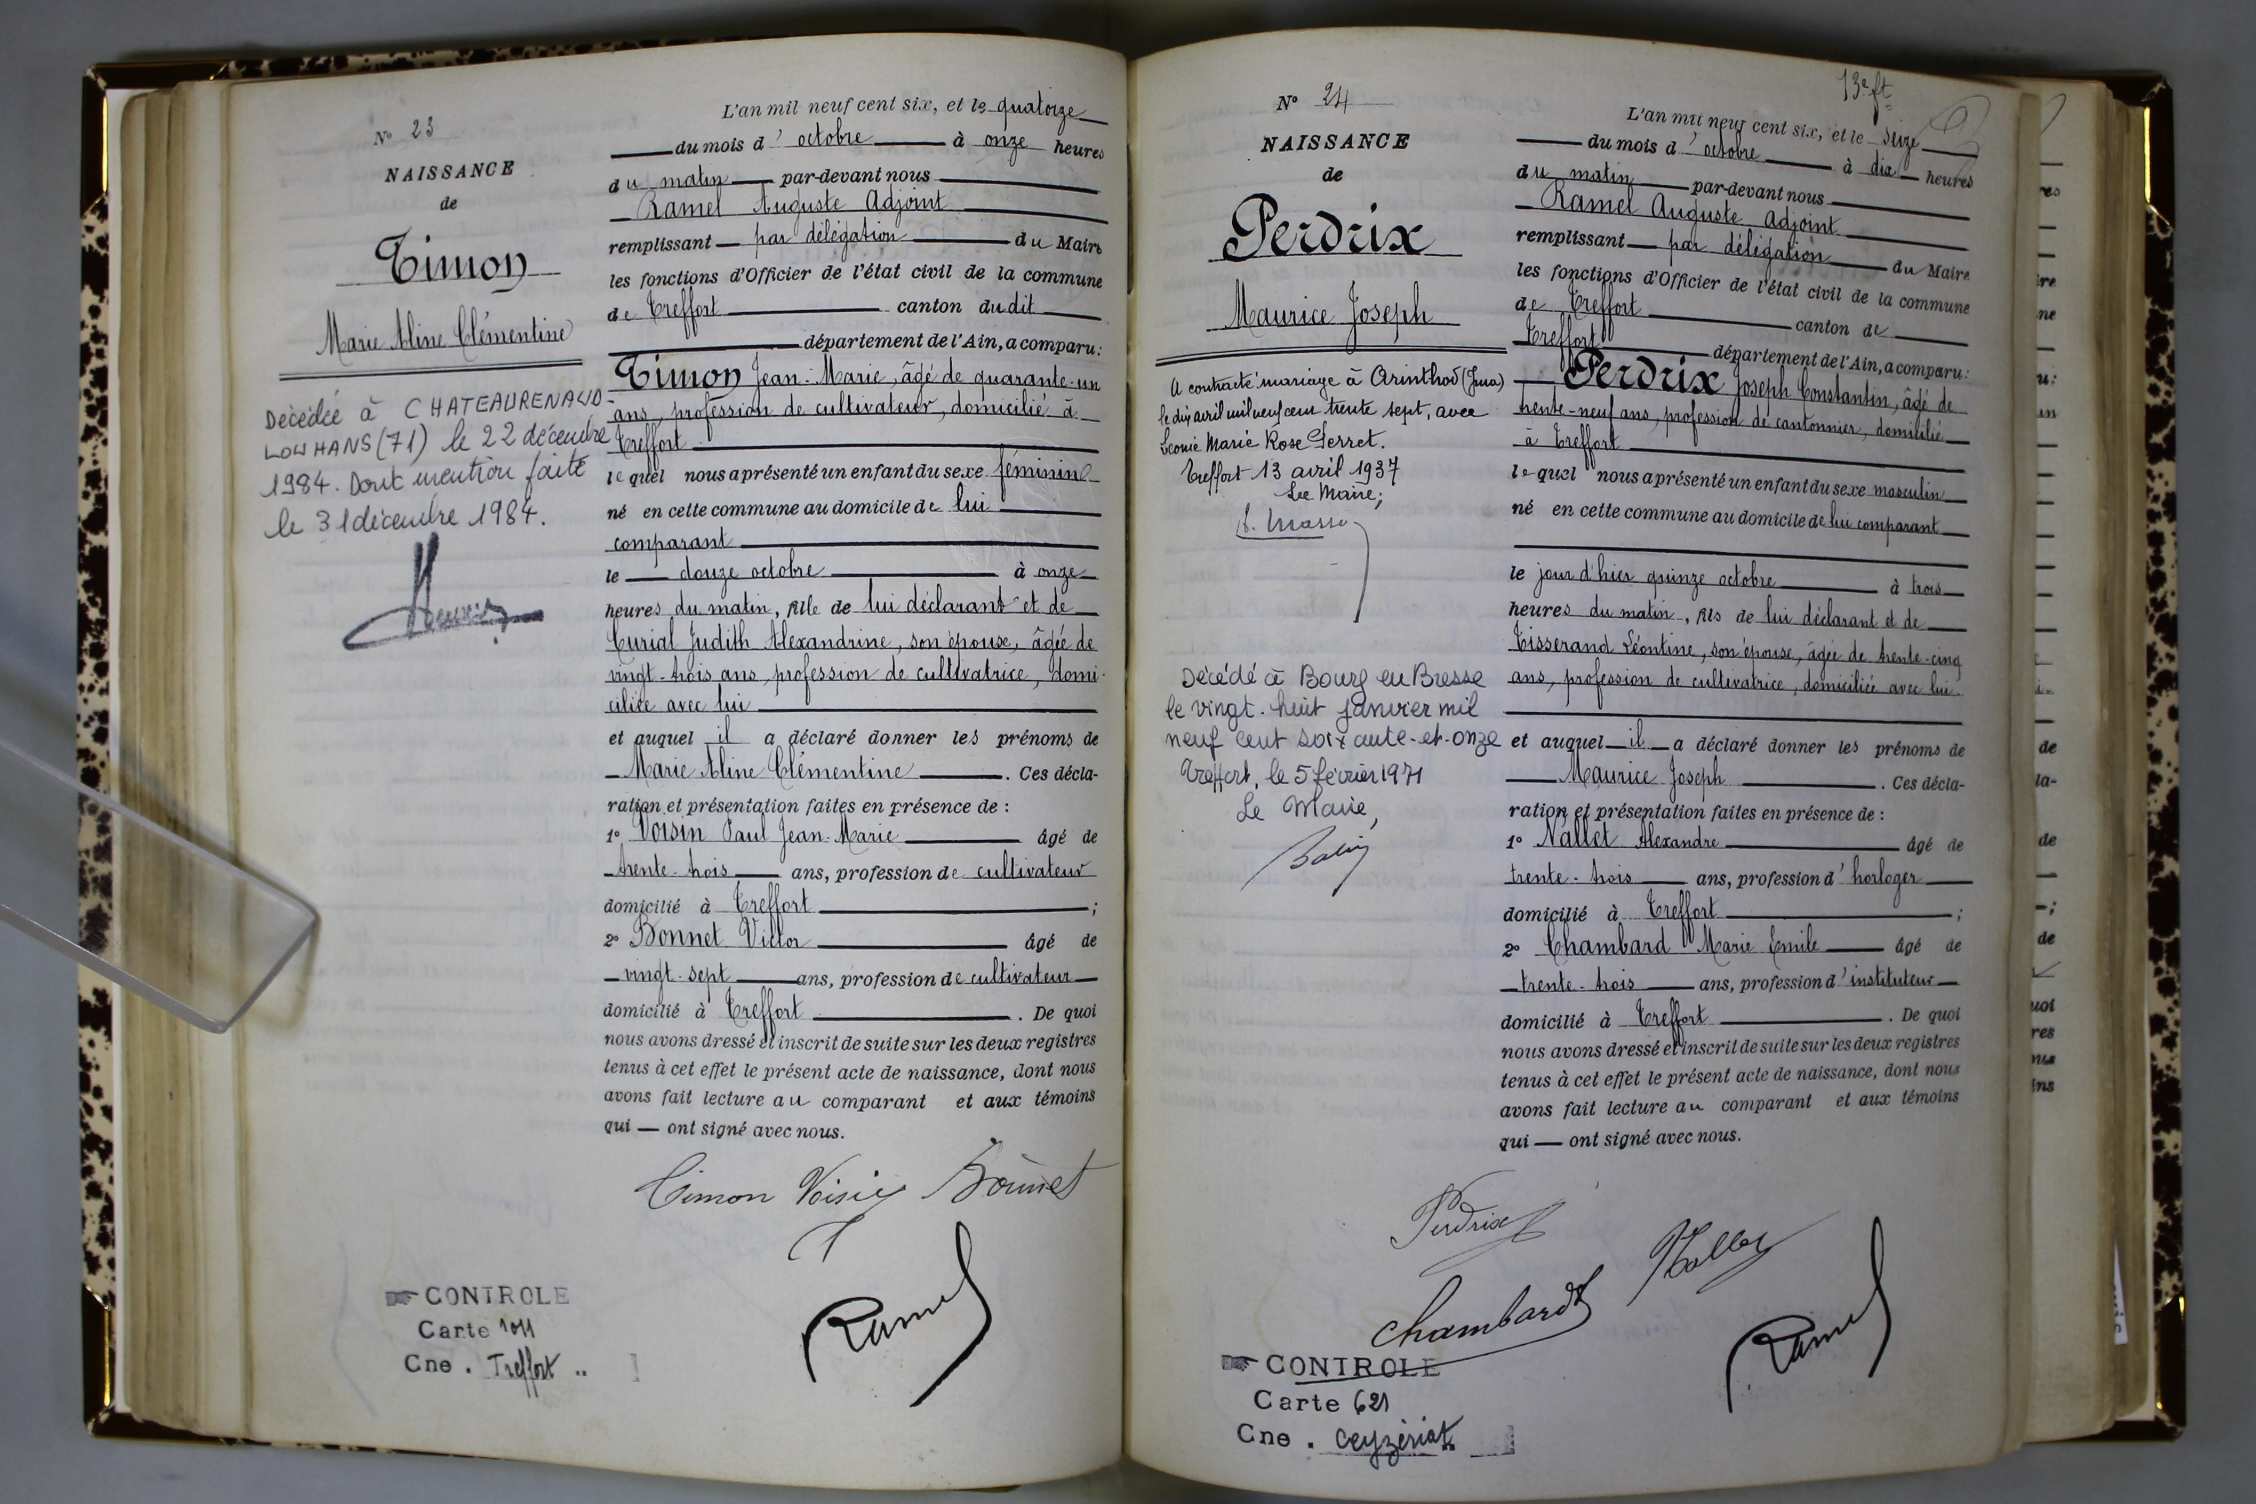 N° 23
NAISSANCE
de
Timon
Marie Aline Clémentine
Décédée à CHATEAURENAUD-
LOUHANS (71) le 22 décembre
1984. Dont mention faite
le 31 décembre 1984.
L'an mil neuf cent six, et le quatorze
du mois d'octobre à onze heures
du matin par-devant nous
Ramel Auguste Adjoint
remplissant par délégation du Maire
les fonctions d'Officier de l'état civil de la commune
de Treffort canton dudit
département de l'Ain, a comparu:
Timon Jean-Marie, âgé de quarante-un
ans, profession de cultivateur, domicilié à
Treffort
lequel nous a présenté un enfant du sexe féminin
né en cette commune au domicile de lui
comparant
le douze octobre à onze
heures du matin, fille de lui déclarant et de
Curial Judith Alexandrine, son épouse, âgée de
vingt-trois ans, profession de cultivatrice, domi-
ciliée avec lui
et auquel il a déclaré donner les prénoms de
Marie Aline Clémentine. Ces décla-
ration et présentation faites en présence de :
1° Voisin Paul Jean-Marie âgé de
trente-trois ans, profession de cultivateur
domicilié à Treffort ;
2° Bonnet Victor âgé de
vingt-sept ans, profession de cultivateur
domicilié à Treffort. De quoi
nous avons dressé et inscrit de suite sur les deux registres
tenus à cet effet le présent acte de naissance, dont nous
avons fait lecture au comparant et aux témoins
qui — ont signé avec nous.
Timon Voisin Bonnet
Ramel
CONTROLE
Carte 1011
Cne. Treffort
13e ft
N° 24
NAISSANCE
de
Perdrix
Maurice Joseph
A contracté mariage à Arinthod (Jura)
le dix avril mil neuf cent trente sept, avec
Léonie Marie Rose Perret.
Treffort 13 avril 1937
Le Maire;
Décédé à Bourg en Bresse
le vingt-huit janvier mil
neuf cent soixante-et-onze
Treffort, le 5 février 1971
Le Maire,
L'an mil neuf cent six, et le seize
du mois d'octobre à dix heures
du matin par-devant nous
Ramel Auguste Adjoint
remplissant par délégation du Maire
les fonctions d'Officier de l'état civil de la commune
de Treffort canton de
Treffort département de l'Ain, a comparu:
Perdrix Joseph Constantin, âgé de
trente-neuf ans, profession de cantonnier, domicilié
à Treffort
lequel nous a présenté un enfant du sexe masculin
né en cette commune au domicile de lui comparant
le jour d'hier quinze octobre à trois
heures du matin, fils de lui déclarant et de
Tisserand Léontine, son épouse, âgée de trente-cinq
ans, profession de cultivatrice, domiciliée avec lui
et auquel il a déclaré donner les prénoms de
Maurice Joseph. Ces décla-
ration et présentation faites en présence de :
1° Nallet Alexandre âgé de
trente-trois ans, profession d'horloger
domicilié à Treffort ;
2° Chambard Marie Emile âgé de
trente-trois ans, profession d'instituteur
domicilié à Treffort. De quoi
nous avons dressé et inscrit de suite sur les deux registres
tenus à cet effet le présent acte de naissance, dont nous
avons fait lecture au comparant et aux témoins
qui — ont signé avec nous.
Perdrix
Nallet
Chambard
Ramel
CONTROLE
Carte 621
Cne. Ceyzériat